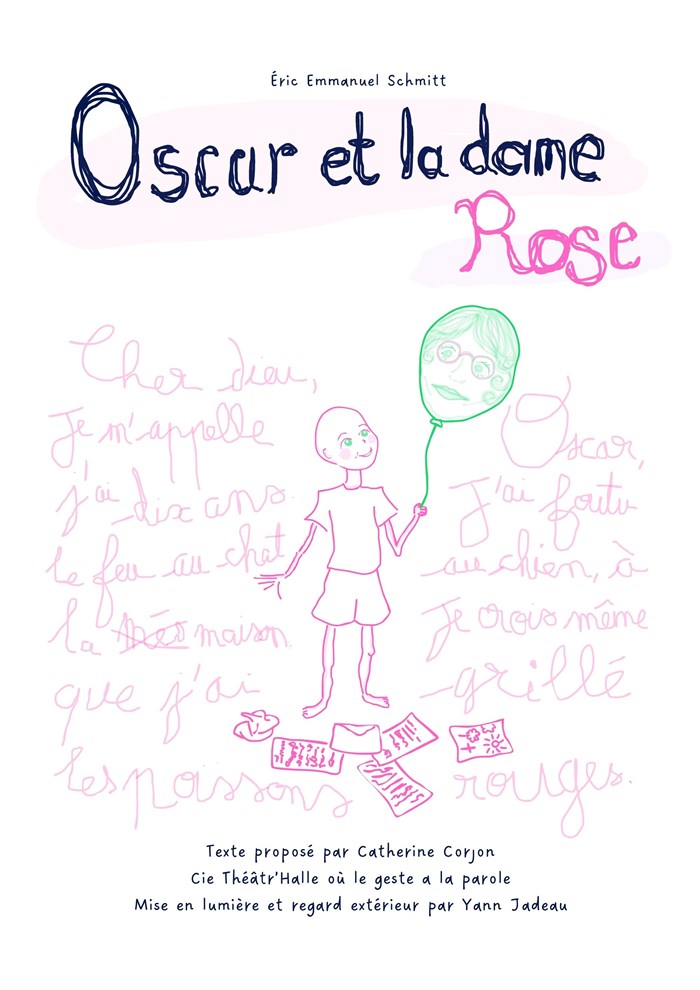 Éric Emmanuel Schmitt
Oscar et la dame
Rose
Cher dieu,
Je m'appelle Oscar,
j'ai dix ans. J'ai foutu
le feu au chat au chien, à
la maison. Je crois même
que j'ai grillé
les poissons rouges.
Texte proposé par Catherine Corjon
Cie Théâtr'Halle où le geste a la parole
Mise en lumière et regard extérieur par Yann Jadeau